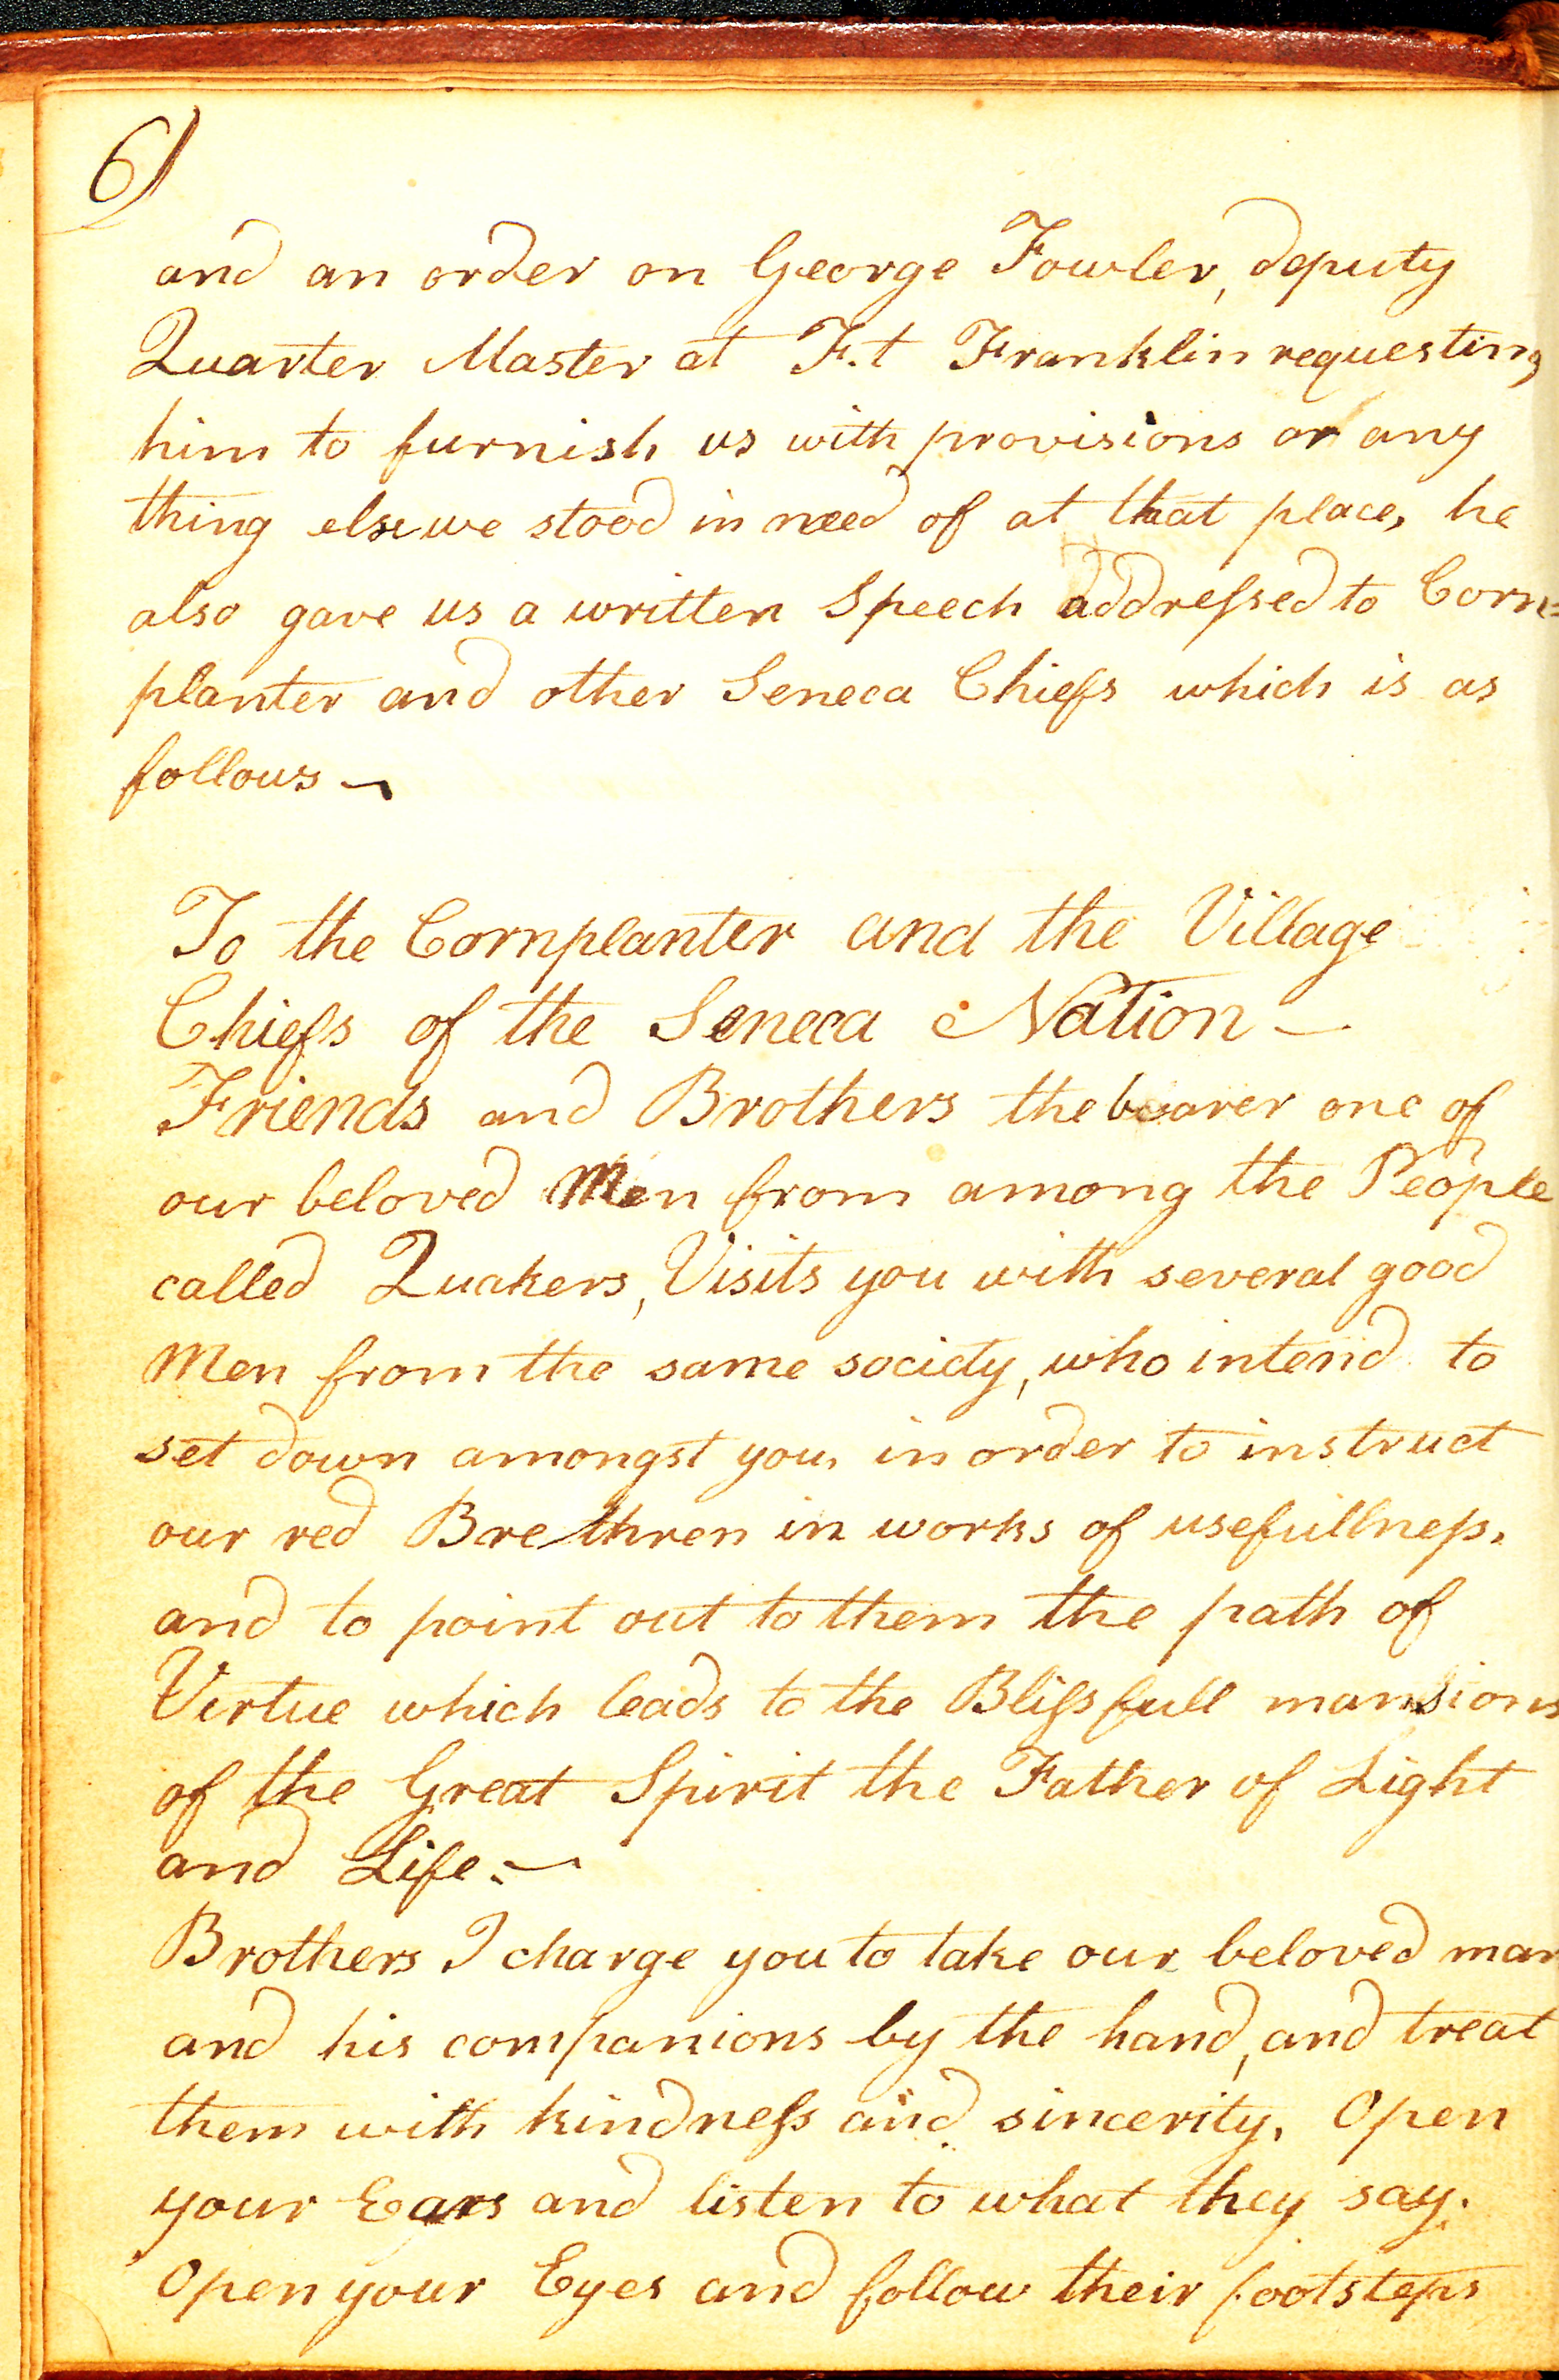 6)
and an order on George Fowler, deputy
Quarter Master at F.t Franklin requesting
him to furnish us with provisions or any
thing else we stood in need of at that place, he
also gave us a written Speech addressed to Corn=
planter and other Seneca Chiefs which is as
follows —
To the Cornplanter and the Village
Chiefs of the Seneca Nation —
Friends and Brothers the bearer one of
our beloved Men from among the People
called Quakers, Visits you with several good
Men from the same society, who intend to
set down amongst you, in order to instruct
our red Brethren in works of usefullness,
and to point out to them the path of
Virtue which leads to the Blissfull mansions
of the Great Spirit the Father of Light
and Life. —
Brothers I charge you to take our beloved man
and his companions by the hand, and treat
them with kindness and sincerity, Open
your Ears and listen to what they say.
Open your Eyes and follow their footsteps